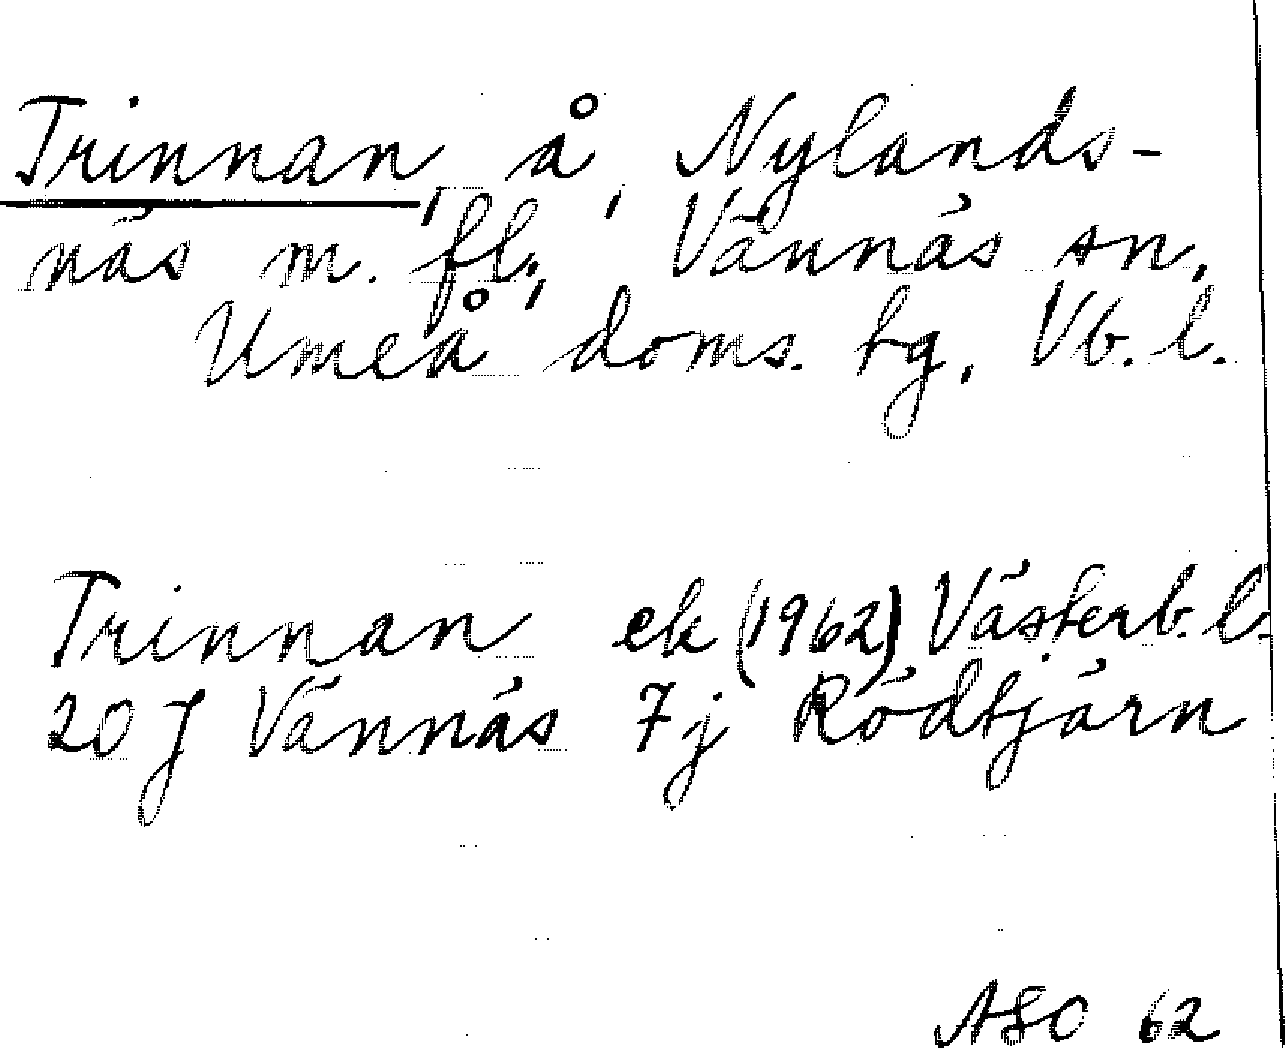 Trinnan, å, Nylands-
näs m. fl., Vännäs sn,
Umeå doms. tg, Vb. l.
Trinnan ek (1962) Västerb. l.
20 J Vännäs 7j Rödtjärn
ASO 62